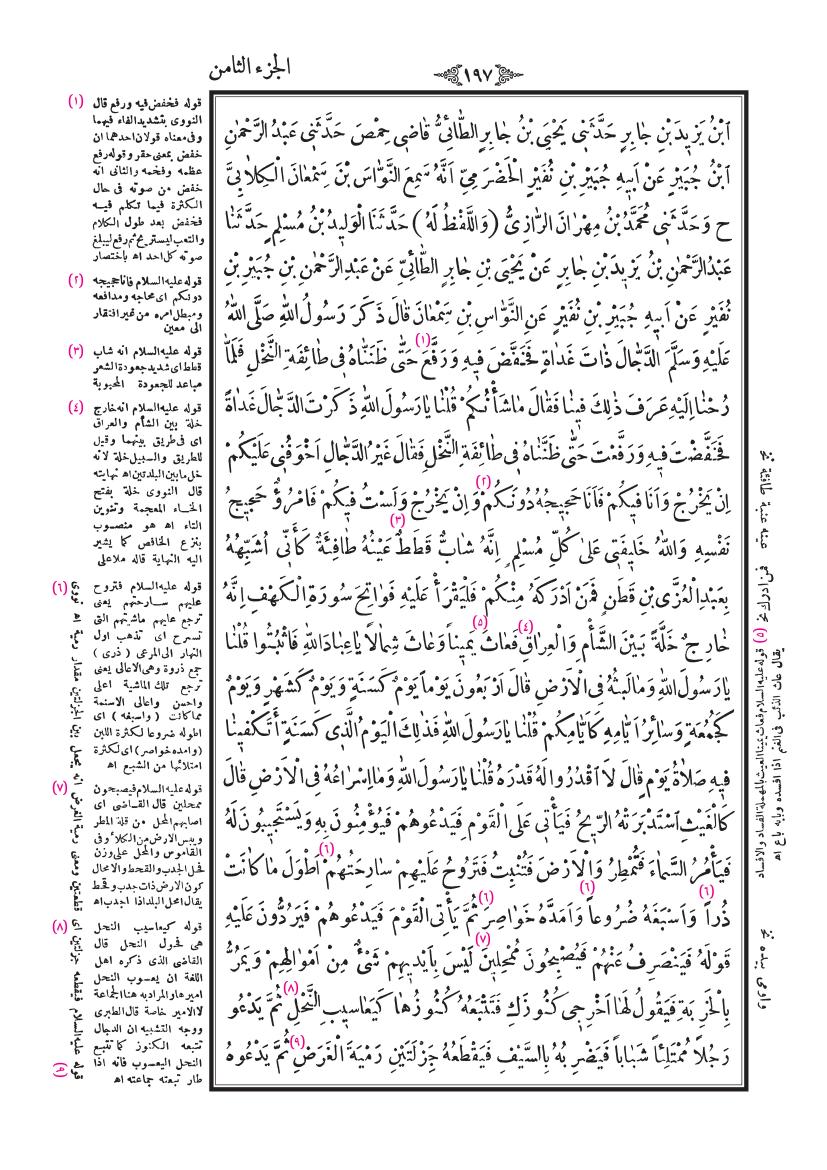 الجزء الثامن
١٩٧
ابْنُ يَزِيدَ بْنِ جَابِرٍ حَدَّثَنِي يَحْيَى بْنُ جَابِرٍ الطَّائِيُّ قَاضِي حِمْصَ حَدَّثَنِي عَبْدُ الرَّحْمٰنِ
ابْنُ جُبَيْرٍ عَنْ أَبِيهِ جُبَيْرِ بْنِ نُفَيْرٍ الْحَضْرَمِيِّ أَنَّهُ سَمِعَ النَّوَّاسَ بْنَ سِمْعَانَ الْكِلَابِيَّ
ح وَحَدَّثَنِي مُحَمَّدُ بْنُ مِهْرَانَ الرَّازِيُّ (وَاللَّفْظُ لَهُ) حَدَّثَنَا الْوَلِيدُ بْنُ مُسْلِمٍ حَدَّثَنَا
عَبْدُ الرَّحْمٰنِ بْنُ يَزِيدَ بْنِ جَابِرٍ عَنْ يَحْيَى بْنِ جَابِرٍ الطَّائِيِّ عَنْ عَبْدِ الرَّحْمٰنِ بْنِ جُبَيْرِ بْنِ
نُفَيْرٍ عَنْ أَبِيهِ جُبَيْرِ بْنِ نُفَيْرٍ عَنِ النَّوَّاسِ بْنِ سِمْعَانَ قَالَ ذَكَرَ رَسُولُ اللهِ صَلَّى اللهُ
عَلَيْهِ وَسَلَّمَ الدَّجَّالَ ذَاتَ غَدَاةٍ فَخَفَّضَ فِيهِ وَرَفَّعَ (١) حَتَّى ظَنَنَّاهُ فِي طَائِفَةِ النَّخْلِ فَلَمَّا
رُحْنَا إِلَيْهِ عَرَفَ ذٰلِكَ فِينَا فَقَالَ مَا شَأْنُكُمْ قُلْنَا يَا رَسُولَ اللهِ ذَكَرْتَ الدَّجَّالَ غَدَاةً
فَخَفَّضْتَ فِيهِ وَرَفَّعْتَ حَتَّى ظَنَنَّاهُ فِي طَائِفَةِ النَّخْلِ فَقَالَ غَيْرُ الدَّجَّالِ أَخْوَفُنِي عَلَيْكُمْ
إِنْ يَخْرُجْ وَأَنَا فِيكُمْ فَأَنَا حَجِيجُهُ دُونَكُمْ (٢) وَإِنْ يَخْرُجْ وَلَسْتُ فِيكُمْ فَامْرُؤٌ حَجِيجُ
نَفْسِهِ وَاللهُ خَلِيفَتِي عَلَى كُلِّ مُسْلِمٍ إِنَّهُ شَابٌّ قَطَطٌ (٣) عَيْنُهُ طَافِئَةٌ كَأَنِّي أُشَبِّهُهُ
بِعَبْدِ الْعُزَّى بْنِ قَطَنٍ فَمَنْ أَدْرَكَهُ مِنْكُمْ فَلْيَقْرَأْ عَلَيْهِ فَوَاتِحَ سُورَةِ الْكَهْفِ إِنَّهُ
خَارِجٌ خَلَّةً بَيْنَ الشَّأْمِ وَالْعِرَاقِ (٤) فَعَاثَ يَمِيناً (٥) وَعَاثَ شِمَالاً يَا عِبَادَ اللهِ فَاثْبُتُوا قُلْنَا
يَا رَسُولَ اللهِ وَمَا لَبْثُهُ فِي الْأَرْضِ قَالَ أَرْبَعُونَ يَوْماً يَوْمٌ كَسَنَةٍ وَيَوْمٌ كَشَهْرٍ وَيَوْمٌ
كَجُمُعَةٍ وَسَائِرُ أَيَّامِهِ كَأَيَّامِكُمْ قُلْنَا يَا رَسُولَ اللهِ فَذٰلِكَ الْيَوْمُ الَّذِي كَسَنَةٍ أَتَكْفِينَا
فِيهِ صَلَاةُ يَوْمٍ قَالَ لَا اقْدُرُوا لَهُ قَدْرَهُ قُلْنَا يَا رَسُولَ اللهِ وَمَا إِسْرَاعُهُ فِي الْأَرْضِ قَالَ
كَالْغَيْثِ اسْتَدْبَرَتْهُ الرِّيحُ فَيَأْتِي عَلَى الْقَوْمِ فَيَدْعُوهُمْ فَيُؤْمِنُونَ بِهِ وَيَسْتَجِيبُونَ لَهُ
فَيَأْمُرُ السَّمَاءَ فَتُمْطِرُ وَالْأَرْضَ فَتُنْبِتُ فَتَرُوحُ عَلَيْهِمْ سَارِحَتُهُمْ (٦) أَطْوَلَ مَا كَانَتْ
ذُراً (٦) وَأَسْبَغَهُ ضُرُوعاً (٦) وَأَمَدَّهُ خَوَاصِرَ (٦) ثُمَّ يَأْتِي الْقَوْمَ فَيَدْعُوهُمْ فَيَرُدُّونَ عَلَيْهِ
قَوْلَهُ فَيَنْصَرِفُ عَنْهُمْ فَيُصْبِحُونَ مُمْحِلِينَ (٧) لَيْسَ بِأَيْدِيهِمْ شَيْءٌ مِنْ أَمْوَالِهِمْ وَيَمُرُّ
بِالْخَرِبَةِ فَيَقُولُ لَهَا أَخْرِجِي كُنُوزَكِ فَتَتْبَعُهُ كُنُوزُهَا كَيَعَاسِيبِ النَّحْلِ (٨) ثُمَّ يَدْعُو
رَجُلاً مُمْتَلِئاً شَبَاباً فَيَضْرِبُهُ بِالسَّيْفِ فَيَقْطَعُهُ جَزْلَتَيْنِ رَمْيَةَ الْغَرَضِ (٩) ثُمَّ يَدْعُوهُ
(١) قوله فخفض فيه ورفع قال
النووى بتشديد الفاء فيهما
وفى معناه قولان احدهما ان
خفض بمعنى حقر وقوله رفع
عظمه وفخمه والثانى انه
خفض من صوته فى حال
الكثرة فيما تكلم فيه
فخفض بعد طول الكلام
والتعب ليستريح ثم رفع ليبلغ
صوته كل احد اه باختصار
(٢) قوله عليه السلام فانا حجيجه
دونكم اى محاجه ومدافعه
ومبطل امره من غير افتقار
الى معين
(٣) قوله عليه السلام انه شاب
قطط اى شديد جعودة الشعر
مباعد للجعودة المحبوبة
(٤) قوله عليه السلام انه خارج
خلة بين الشأم والعراق
اى فى طريق بينهما وقيل
للطريق والسبيل خلة لانه
خل ما بين البلدتين اه نهايته
قال النووى خلة بفتح
الخاء المعجمة وتنوين
التاء اه هو منصوب
بنزع الخافض كما يشير
اليه النهاية قاله ملا على
(٦) قوله عليه السلام فتروح
عليهم سارحتهم يعنى
ترجع عليهم ماشيتهم التى
تسرح اى تذهب اول
النهار الى المرعى (ذرى)
جمع ذروة وهى الاعالى يعنى
ترجع تلك الماشية اعلى
واحسن واعالى الاسنمة
مما كانت (واسبغه) اى
اطوله ضروعا لكثرة اللبن
(وامده خواصر) اى لكثرة
امتلائها من الشبع اه
(٧) قوله عليه السلام فيصبحون
ممحلين قال القاضى اى
اصابهم المحل من قلة المطر
ويبس الارض من الكلأ وفى
القاموس والمحل على وزن
فحل الجدب والقحط والامحال
كون الارض ذات جدب وقحط
يقال امحل البلد اذا اجدب اه
(٨) قوله كيعاسيب النحل
هى فحول النحل قال
القاضى الذى ذكره اهل
اللغة ان يعسوب النحل
اميرها والمراد به هنا الجماعة
لا الامير خاصة قال الطبرى
ووجه التشبيه ان الدجال
تتبعه الكنوز كما تتبع
النحل اليعسوب فانه اذا
طار تبعته جماعته اه
(٩) قوله عليه السلام فيقطعه جزلتين اى
قطعتين ومعنى رمية الغرض انه يجعل بين الجزلتين مقدار رمية اه نووى
عينه عنبة طافئة نخ
فمن ادرك نخ
(٥) قوله عليه السلام فعاث يمينا العيث بالمهملة الفساد والافساد
يقال عاث الذئب فى الغنم اذا افسده وبابه باع اه
نخ